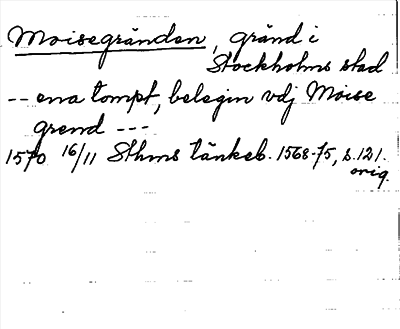 Moisegränden, gränd i
Stockholms stad
-- ena tompt, belegin vdj Moise
grend ---
1570 16/11 Sthms tänkeb. 1568-75, s. 121.
orig.